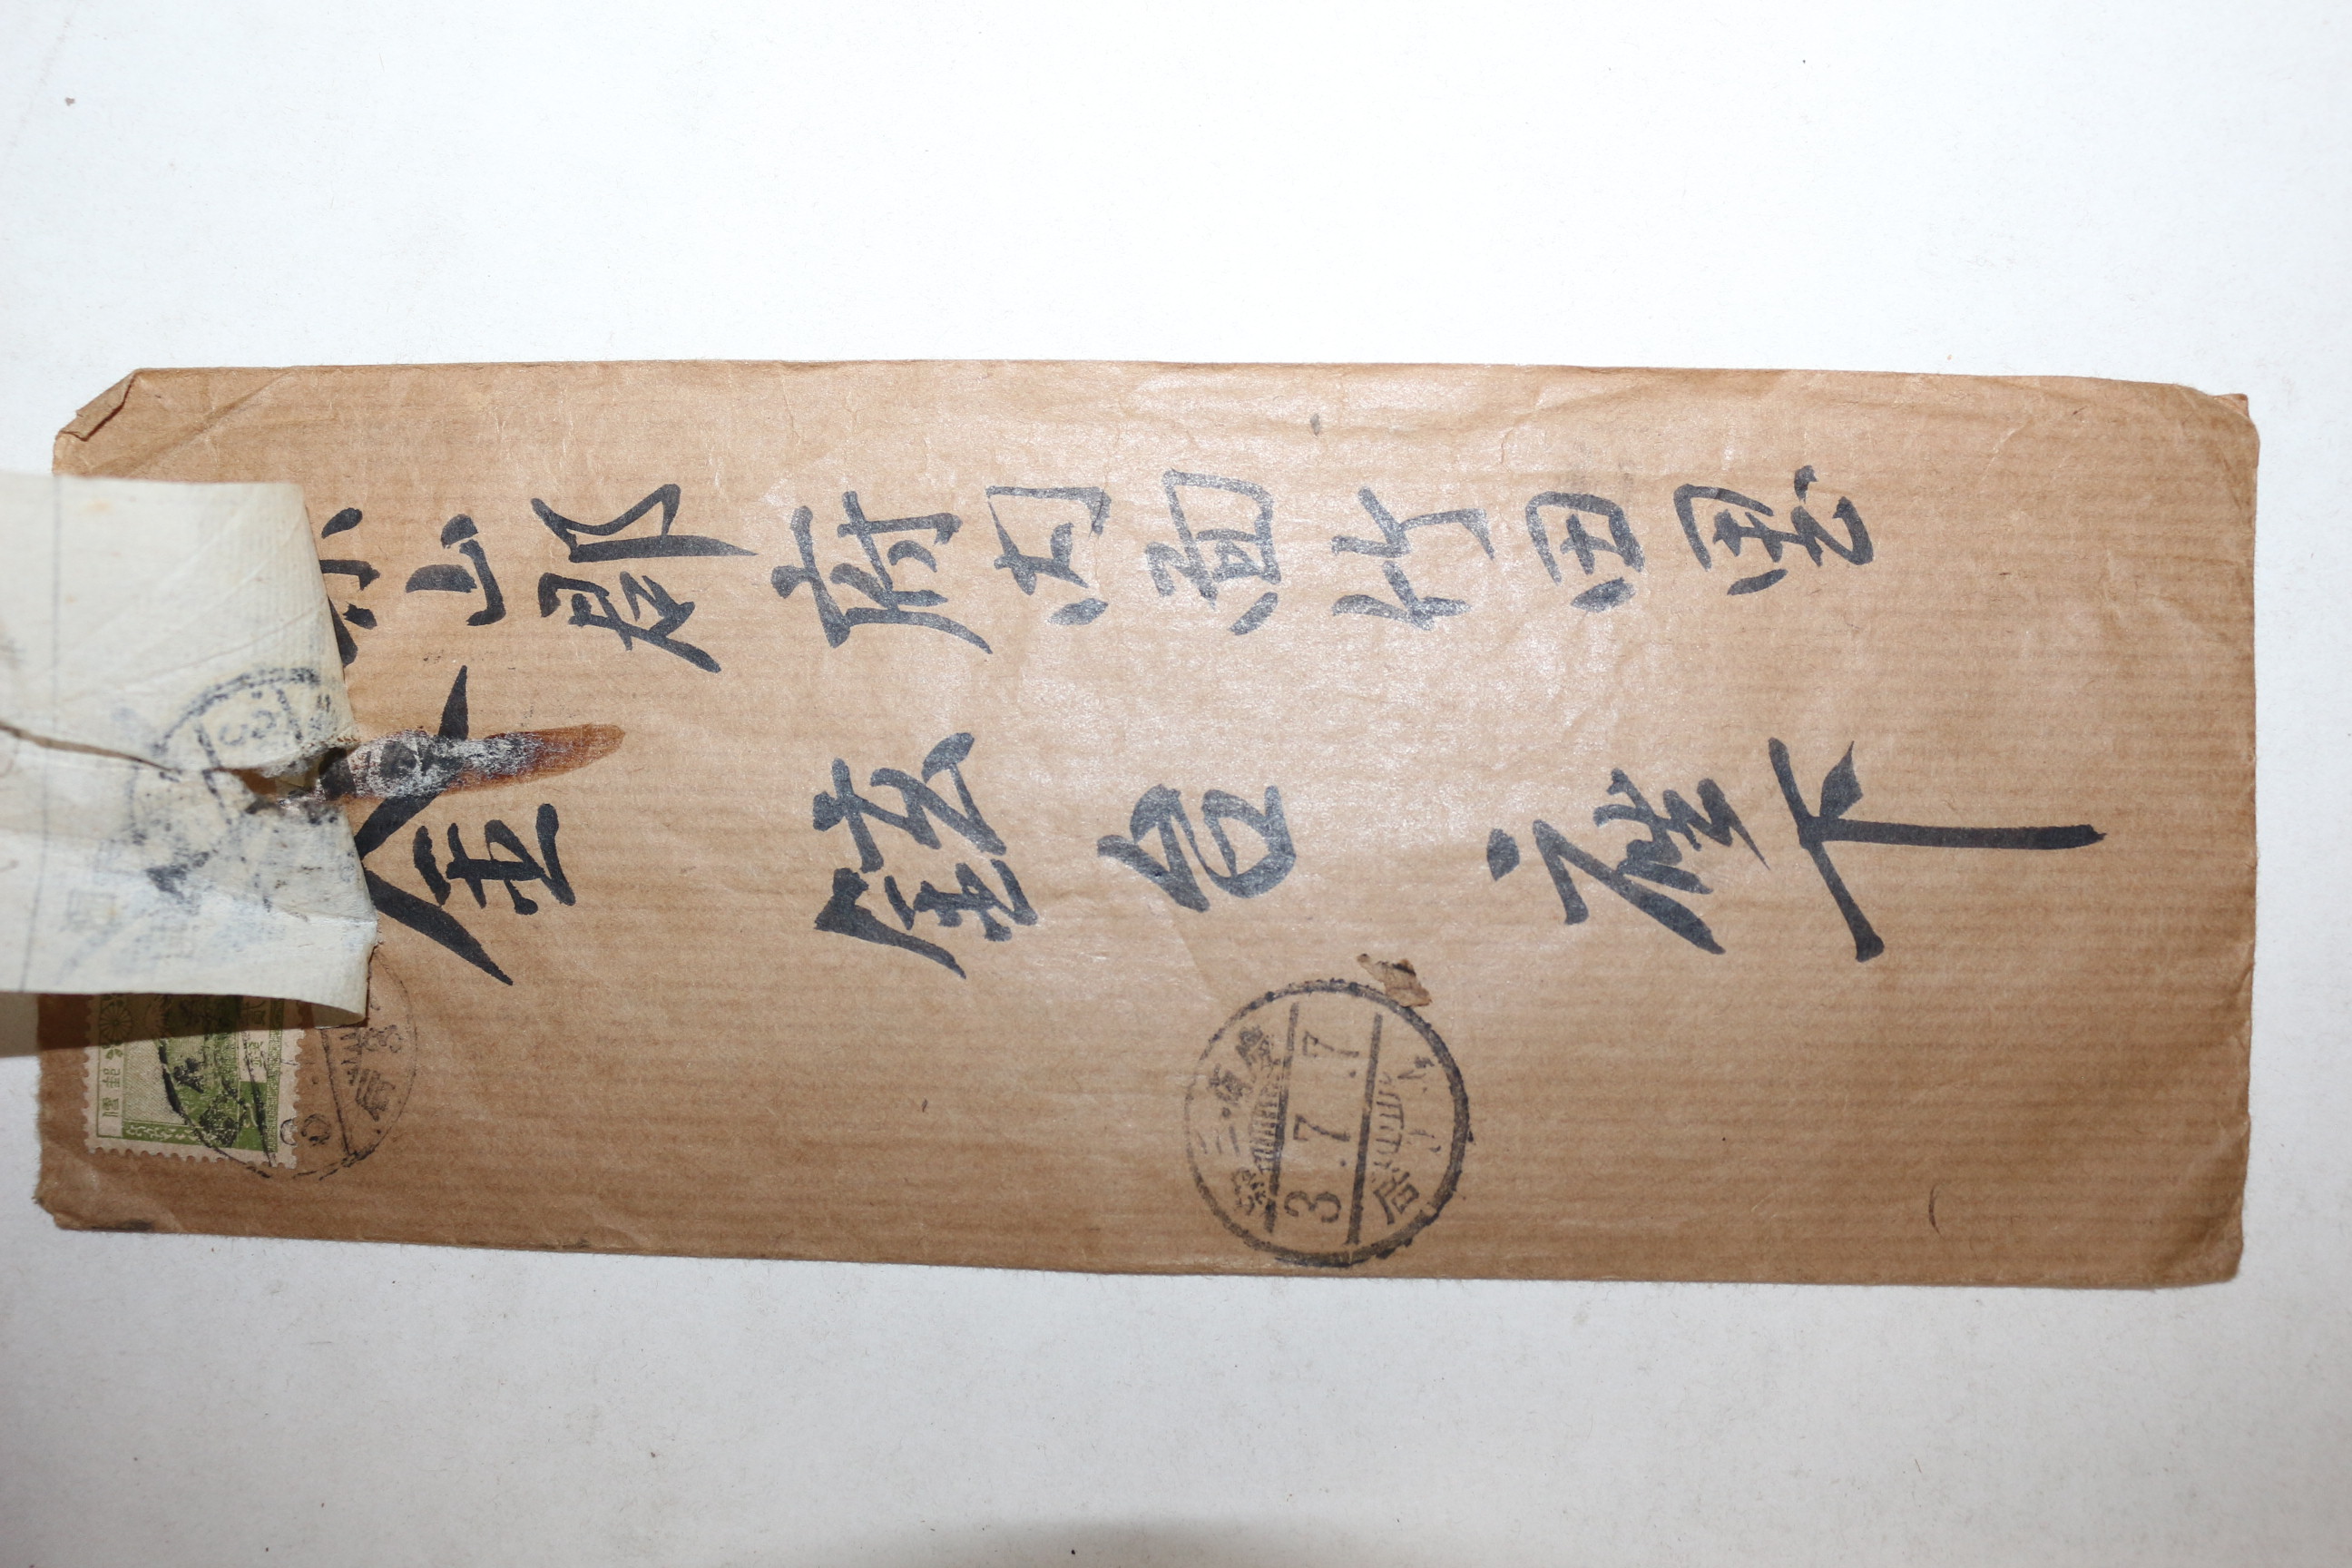 山郡府内面竹田里
金鉉台座下
郵便
錢
3.7.7